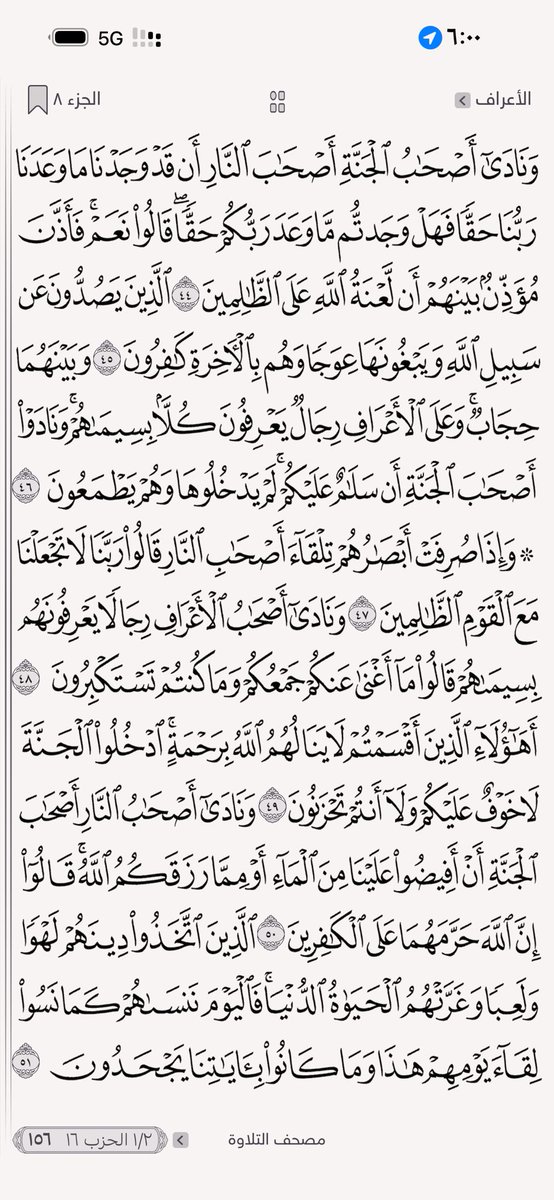 ٦:٠٠ 5G
الأعراف الجزء ٨
وَنَادَىٰٓ أَصۡحَٰبُ ٱلۡجَنَّةِ أَصۡحَٰبَ ٱلنَّارِ أَن قَدۡ وَجَدۡنَا مَا وَعَدَنَا
رَبُّنَا حَقّٗا فَهَلۡ وَجَدتُّم مَّا وَعَدَ رَبُّكُمۡ حَقّٗاۖ قَالُواْ نَعَمۡۚ فَأَذَّنَ
مُؤَذِّنُۢ بَيۡنَهُمۡ أَن لَّعۡنَةُ ٱللَّهِ عَلَى ٱلظَّٰلِمِينَ ٤٤ ٱلَّذِينَ يَصُدُّونَ عَن
سَبِيلِ ٱللَّهِ وَيَبۡغُونَهَا عِوَجٗا وَهُم بِٱلۡأٓخِرَةِ كَٰفِرُونَ ٤٥ وَبَيۡنَهُمَا
حِجَابٞۚ وَعَلَى ٱلۡأَعۡرَافِ رِجَالٞ يَعۡرِفُونَ كُلَّۢا بِسِيمَىٰهُمۡۚ وَنَادَوۡاْ
أَصۡحَٰبَ ٱلۡجَنَّةِ أَن سَلَٰمٌ عَلَيۡكُمۡۚ لَمۡ يَدۡخُلُوهَا وَهُمۡ يَطۡمَعُونَ ٤٦
۞ وَإِذَا صُرِفَتۡ أَبۡصَٰرُهُمۡ تِلۡقَآءَ أَصۡحَٰبِ ٱلنَّارِ قَالُواْ رَبَّنَا لَا تَجۡعَلۡنَا
مَعَ ٱلۡقَوۡمِ ٱلظَّٰلِمِينَ ٤٧ وَنَادَىٰٓ أَصۡحَٰبُ ٱلۡأَعۡرَافِ رِجَالٗا يَعۡرِفُونَهُم
بِسِيمَىٰهُمۡ قَالُواْ مَآ أَغۡنَىٰ عَنكُمۡ جَمۡعُكُمۡ وَمَا كُنتُمۡ تَسۡتَكۡبِرُونَ ٤٨
أَهَٰٓؤُلَآءِ ٱلَّذِينَ أَقۡسَمۡتُمۡ لَا يَنَالُهُمُ ٱللَّهُ بِرَحۡمَةٍۚ ٱدۡخُلُواْ ٱلۡجَنَّةَ
لَا خَوۡفٌ عَلَيۡكُمۡ وَلَآ أَنتُمۡ تَحۡزَنُونَ ٤٩ وَنَادَىٰٓ أَصۡحَٰبُ ٱلنَّارِ أَصۡحَٰبَ
ٱلۡجَنَّةِ أَنۡ أَفِيضُواْ عَلَيۡنَا مِنَ ٱلۡمَآءِ أَوۡ مِمَّا رَزَقَكُمُ ٱللَّهُۚ قَالُوٓاْ
إِنَّ ٱللَّهَ حَرَّمَهُمَا عَلَى ٱلۡكَٰفِرِينَ ٥٠ ٱلَّذِينَ ٱتَّخَذُواْ دِينَهُمۡ لَهۡوٗا
وَلَعِبٗا وَغَرَّتۡهُمُ ٱلۡحَيَوٰةُ ٱلدُّنۡيَاۚ فَٱلۡيَوۡمَ نَنسَىٰهُمۡ كَمَا نَسُواْ
لِقَآءَ يَوۡمِهِمۡ هَٰذَا وَمَا كَانُواْ بِـَٔايَٰتِنَا يَجۡحَدُونَ ٥١
مصحف التلاوة ١/٢ الحزب ١٦ ١٥٦